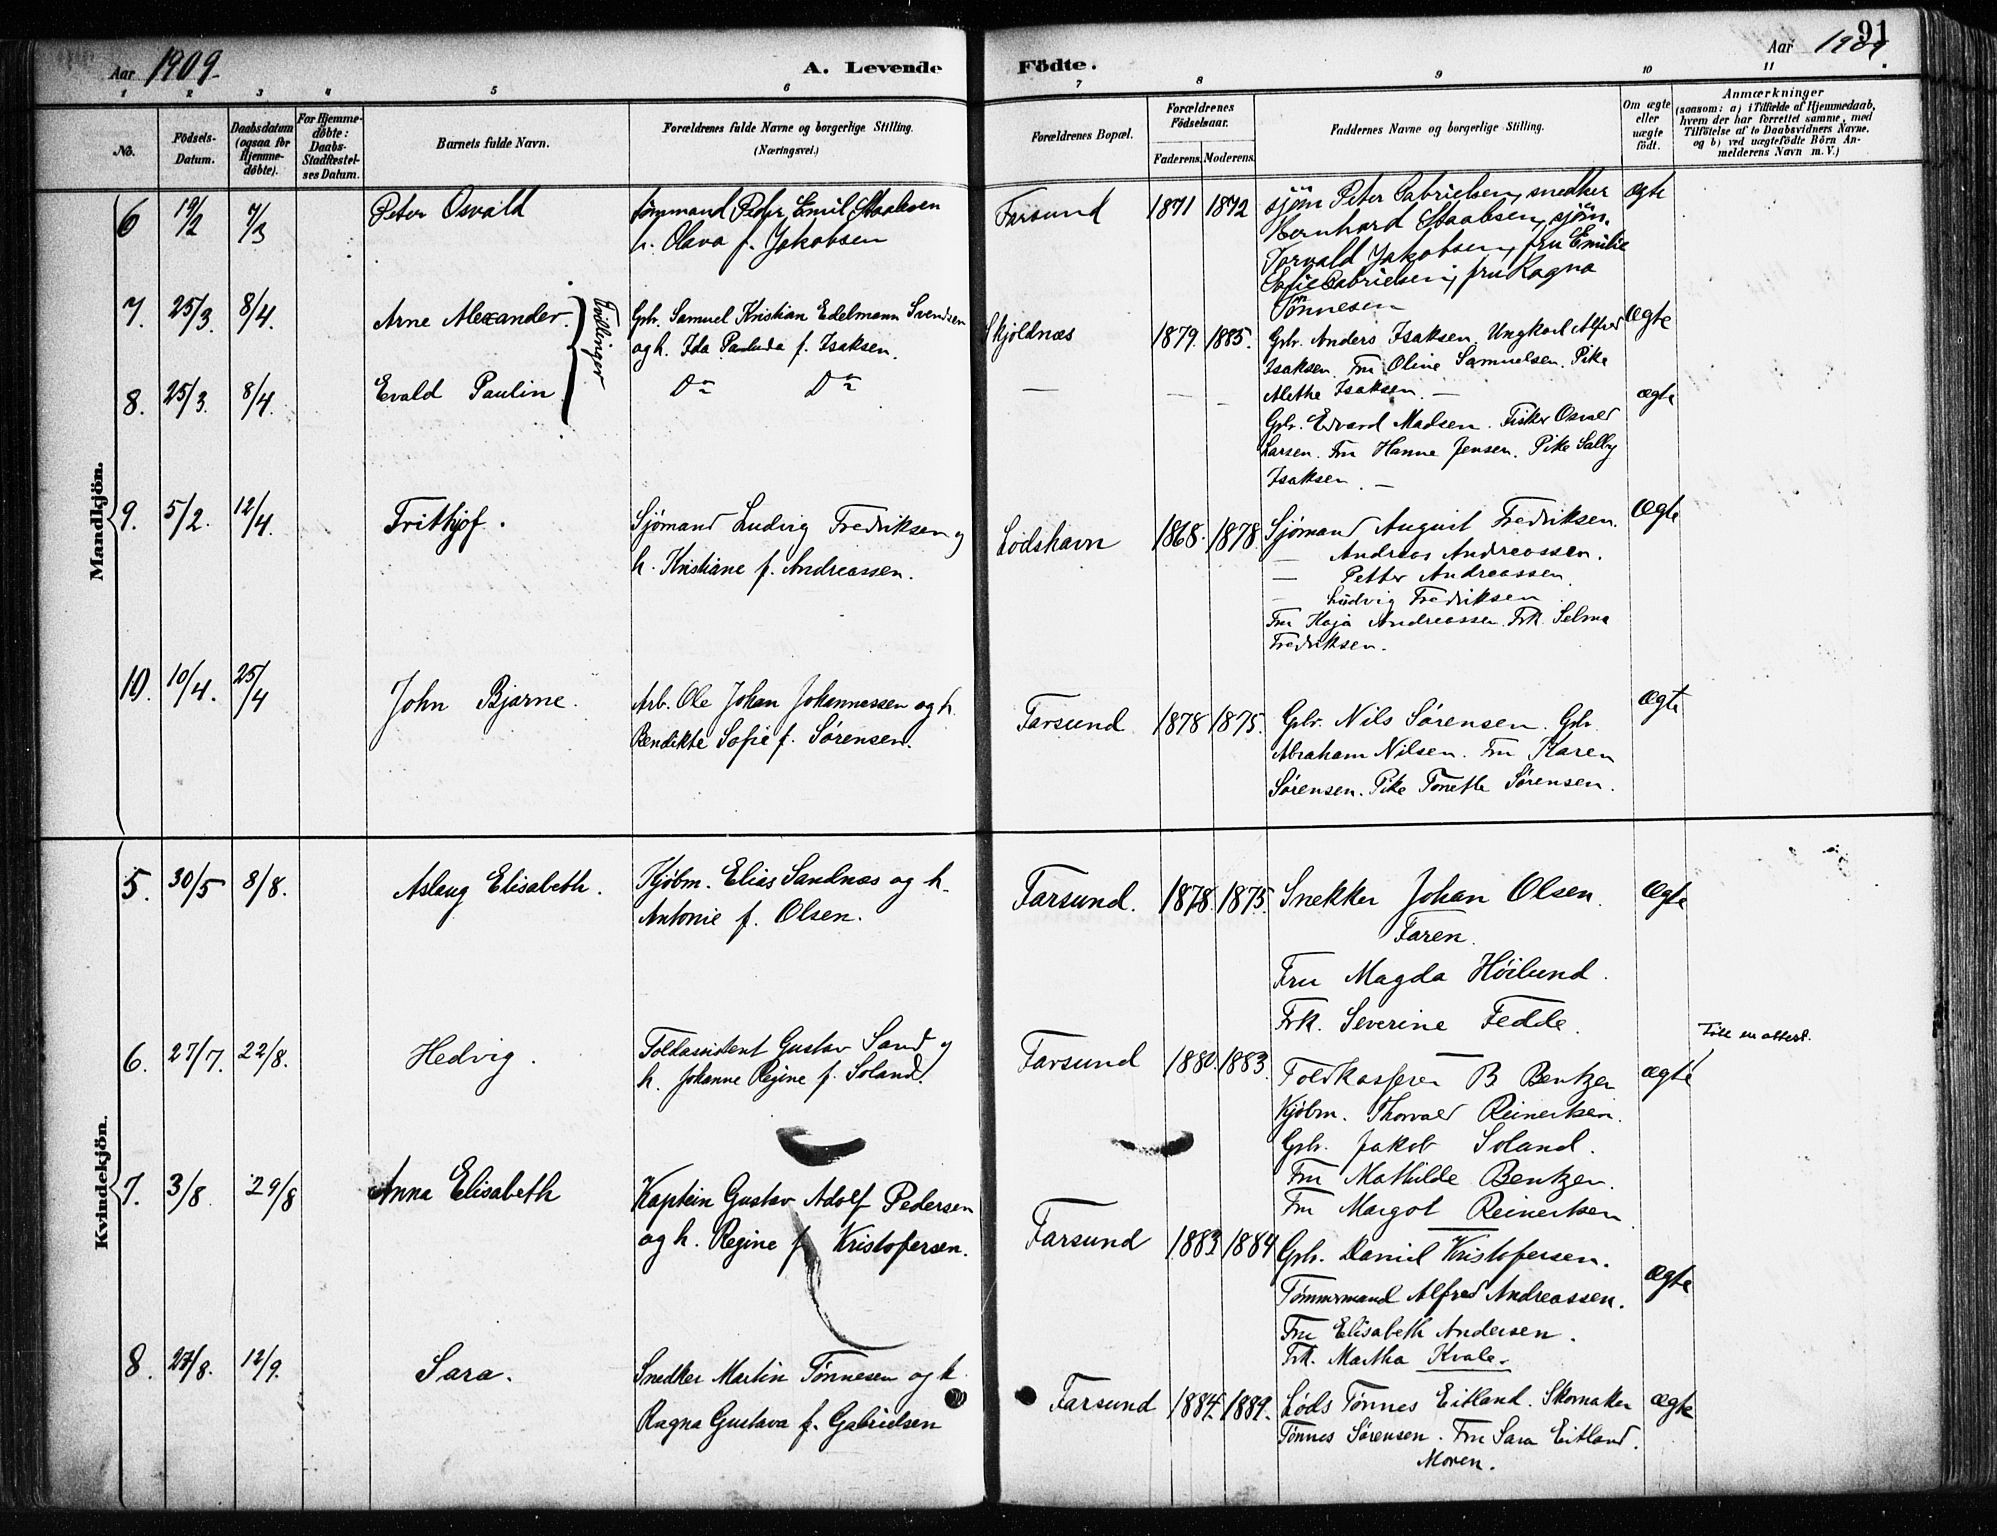 Aar 1909.
A. Levende
Födte.
Aar 1909.
91
1 2 3 4 5 6 7 8 9 10 11
No.
Födsels-
Datum.
Daabsdatum
(ogsaa for
Hjemme-
döbte).
For Hjemme-
döbte:
Daabs-
Stadfæstel-
ses Datum.
Barnets fulde Navn.
Forældrenes fulde Navne og borgerlige Stilling.
(Næringsvei.)
Forældrenes Bopæl.
Forældrenes
Födselsaar.
Faderens. Moderens.
Faddernes Navne og borgerlige Stilling.
Om ægte
eller
uægte
født.
Anmærkninger
(saasom: a) i Tilfælde af Hjemmedaab,
hvem der har forrettet samme, med
Tilføielse af to Daabsvidners Navne.
og b) ved uægtefödte Börn An-
melderens Navn m. V.)
Mandkjön.
6 19/2 7/3 Peter Osvald
sømmand Peder Emil Staalesen
h. Olava f. Jakobsen
Farsund 1871 1872
sjöm Peter Gabrielsen, snedker
Bernhard Staalesen, sjöm.
Torvald Jakobsen, fru Emilie
Sofie Gabrielsen, fru Ragna
Tønnesen
ægte
7. 25/3. 8/4. Arne Alexander.
Tvillinger
Gbr. Samuel Kristian Edelmann Svendsen
og h. Ida Paulida f. Isaksen.
Skjoldnæs 1879. 1885.
Gbr. Anders Isaksen. Ungkarl Alfred
Isaksen. Fru Oline Samuelsen. Pike
Alethe Isaksen. —
ægte
8. 25/3. 8/4. Evald Paulin
Do Do
— — —
Gbr. Edvard Madsen. Fisker Osvald
Larsen. Fru Hanne Jensen. Pike Sally
Isaksen. —
ægte
9. 5/2. 12/4. Frithjof.
Sjømand Ludvig Fredriksen og
h. Kristiane f. Andreassen.
Lodshavn 1868. 1878.
Sjømand August Fredriksen.
— Andreas Andreassen.
— Petter Andreassen.
— Ludvig Fredriksen.
Fru Kaja Andreassen. Frk. Selma
Fredriksen.
Ægte
10. 10/4. 25/4 John Bjarne.
Arb. Ole Johan Johannessen og h.
Bendikte Sofie f. Sørensen.
Farsund 1878 1875.
Gbr. Nils Sørensen. Gbr.
Abraham Nilsen. Fru Karen
Sørensen. Pike Tonette Sørensen.
ægte
Kvindekjön.
5. 30/5 8/8. Aslaug Elisabeth.
Kjøbm. Elias Sandnæs og h.
Antonie f. Olsen.
Farsund. 1878. 1875.
Snekker Johan Olsen.
Faren.
Fru Magda Höilund.
Frk. Severine Fedde.
Ægte
6. 27/7. 22/8. Hedvig.
Toldassistent Gustav Sand og
h. Johanne Regine f. Soland.
Farsund 1880. 1883.
Toldkasserer B Bentzen
Kjöbm. Thorvald Reinertsen.
Gbr. Jakob Soland.
Fru Mathilde Bentzen.
Fru Margot Reinertsen
ægte
7. 3/8. 29/8 Anna Elisabeth
Kaptein Gustav Adolf Pedersen
og h. Regine f. Kristofersen.
Farsund 1883 1884
Gbr. Daniel Kristofersen.
Tømmermand Alfred Andreassen.
Fru Elisabeth Andersen.
Frk. Martha Kvale.
Ægte
8. 27/8. 12/9. Sara.
Snedker Martin Tønnesen og h.
Ragna Gustava f. Gabrielsen
Farsund 1884. 1889.
Lods Tønnes Eitland. Skomaker
Tønnes Sørensen. Fru Sara Eitland.
Moren.
ægte